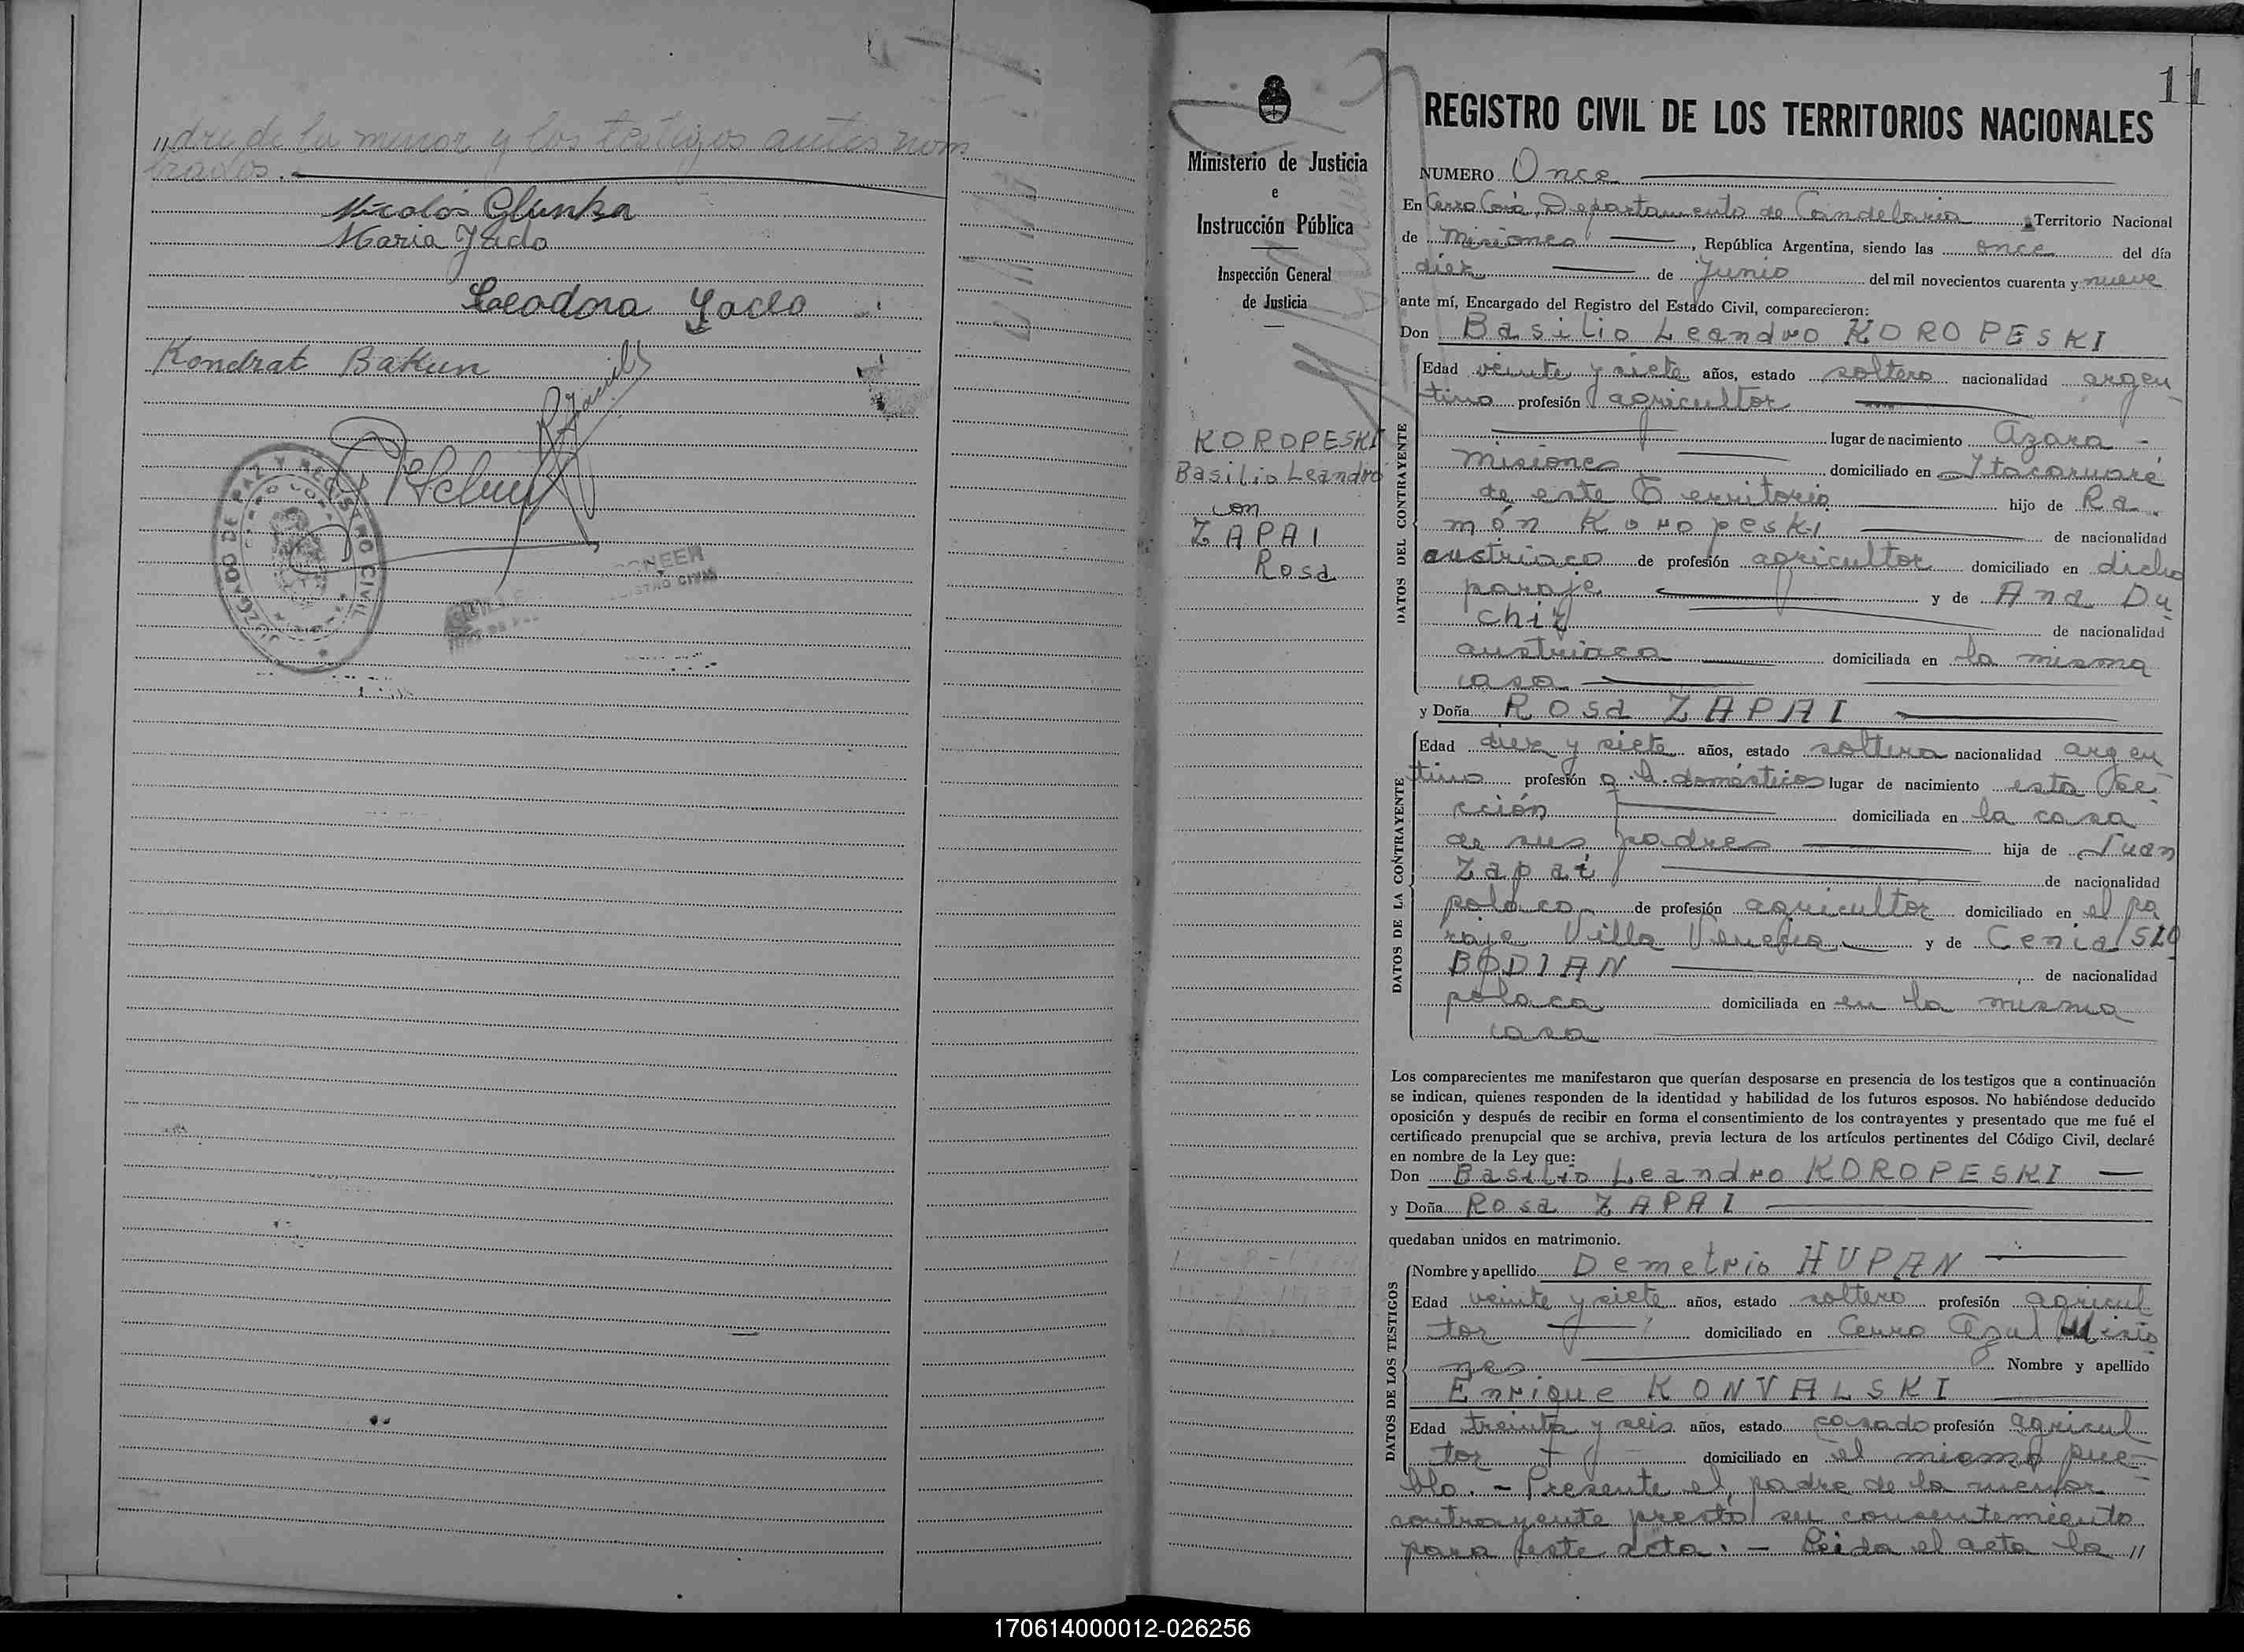 "dre de la menor y los testigos antes nom
brados.
Nicolás Glunka
Maria Yaclo
Leodora Yaclo
Kondrat Bakun
JUZGADO DE PAZ Y REGISTRO CIVIL
Ministerio de Justicia
e
Instrucción Pública
Inspección General
de Justicia
KOROPESKI
Basilio Leandro
con
ZAPAI
Rosa
11
REGISTRO CIVIL DE LOS TERRITORIOS NACIONALES
NUMERO Once
En Cerro Corá, Departamento de Candelaria Territorio Nacional
de Misiones, República Argentina, siendo las once del día
diez de Junio del mil novecientos cuarenta y nueve
ante mí, Encargado del Registro del Estado Civil, comparecieron:
Don Basilio Leandro KOROPESKI
DATOS DEL CONTRAYENTE
Edad veinte y siete años, estado soltero nacionalidad argen
tino profesión agricultor
lugar de nacimiento Azara -
Misiones domiciliado en Itacaruaré
de este Territorio hijo de Ra
món Koropeski de nacionalidad
austriaco de profesión agricultor domiciliado en dicho
paraje y de Ana Du
chiz de nacionalidad
austriaca domiciliada en la misma
casa
y Doña Rosa ZAPAI
DATOS DE LA CONTRAYENTE
Edad diez y siete años, estado soltera nacionalidad argen
tina profesión q. h. domésticos lugar de nacimiento esta Se
cción domiciliada en la casa
de sus padres hija de Juan
Zapai de nacionalidad
polaco de profesión agricultor domiciliado en el pa
raje Villa Venecia y de Cenia SLO
BODIAN de nacionalidad
polaca domiciliada en en la misma
casa
Los comparecientes me manifestaron que querían desposarse en presencia de los testigos que a continuación
se indican, quienes responden de la identidad y habilidad de los futuros esposos. No habiéndose deducido
oposición y después de recibir en forma el consentimiento de los contrayentes y presentado que me fué el
certificado prenupcial que se archiva, previa lectura de los artículos pertinentes del Código Civil, declaré
en nombre de la Ley que:
Don Basilio Leandro KOROPESKI
y Doña Rosa ZAPAI
quedaban unidos en matrimonio.
DATOS DE LOS TESTIGOS
Nombre y apellido Demetrio HUPAN
Edad veinte y siete años, estado soltero profesión agricul
tor domiciliado en Cerro Azul Misio
nes Nombre y apellido
Enrique KONVALSKI
Edad treinta y seis años, estado casado profesión agricul
tor domiciliado en el mismo pue
blo. - Presente el padre de la menor
contrayente prestó su consentimiento
para este acto. - Leida el acta la "
170614000012-026256